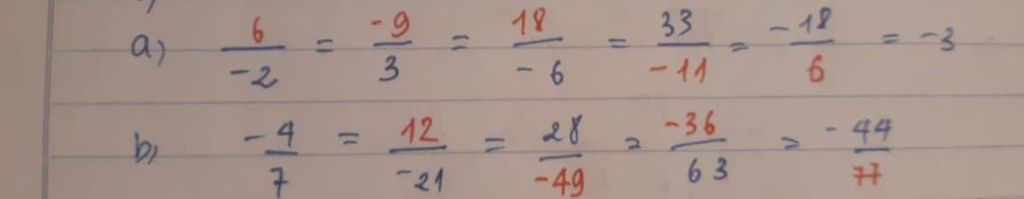 a) 6/-2 = -9/3 = 18/-6 = 33/-11 = -18/6 = -3
b) -4/7 = 12/-21 = 28/-49 = -36/63 = -44/77